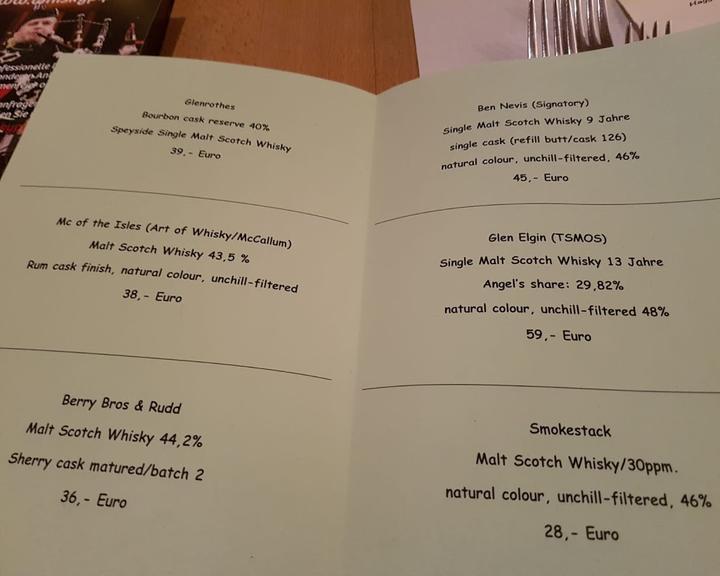 Glenrothes
Bourbon cask reserve 40%
Speyside Single Malt Scotch Whisky
39,- Euro
Mc of the Isles (Art of Whisky/McCallum)
Malt Scotch Whisky 43,5 %
Rum cask finish, natural colour, unchill-filtered
38,- Euro
Berry Bros & Rudd
Malt Scotch Whisky 44,2%
Sherry cask matured/batch 2
36,- Euro
Ben Nevis (Signatory)
Single Malt Scotch Whisky 9 Jahre
single cask (refill butt/cask 126)
natural colour, unchill-filtered, 46%
45,- Euro
Glen Elgin (TSMOS)
Single Malt Scotch Whisky 13 Jahre
Angel's share: 29,82%
natural colour, unchill-filtered 48%
59,- Euro
Smokestack
Malt Scotch Whisky/30ppm.
natural colour, unchill-filtered, 46%
28,- Euro